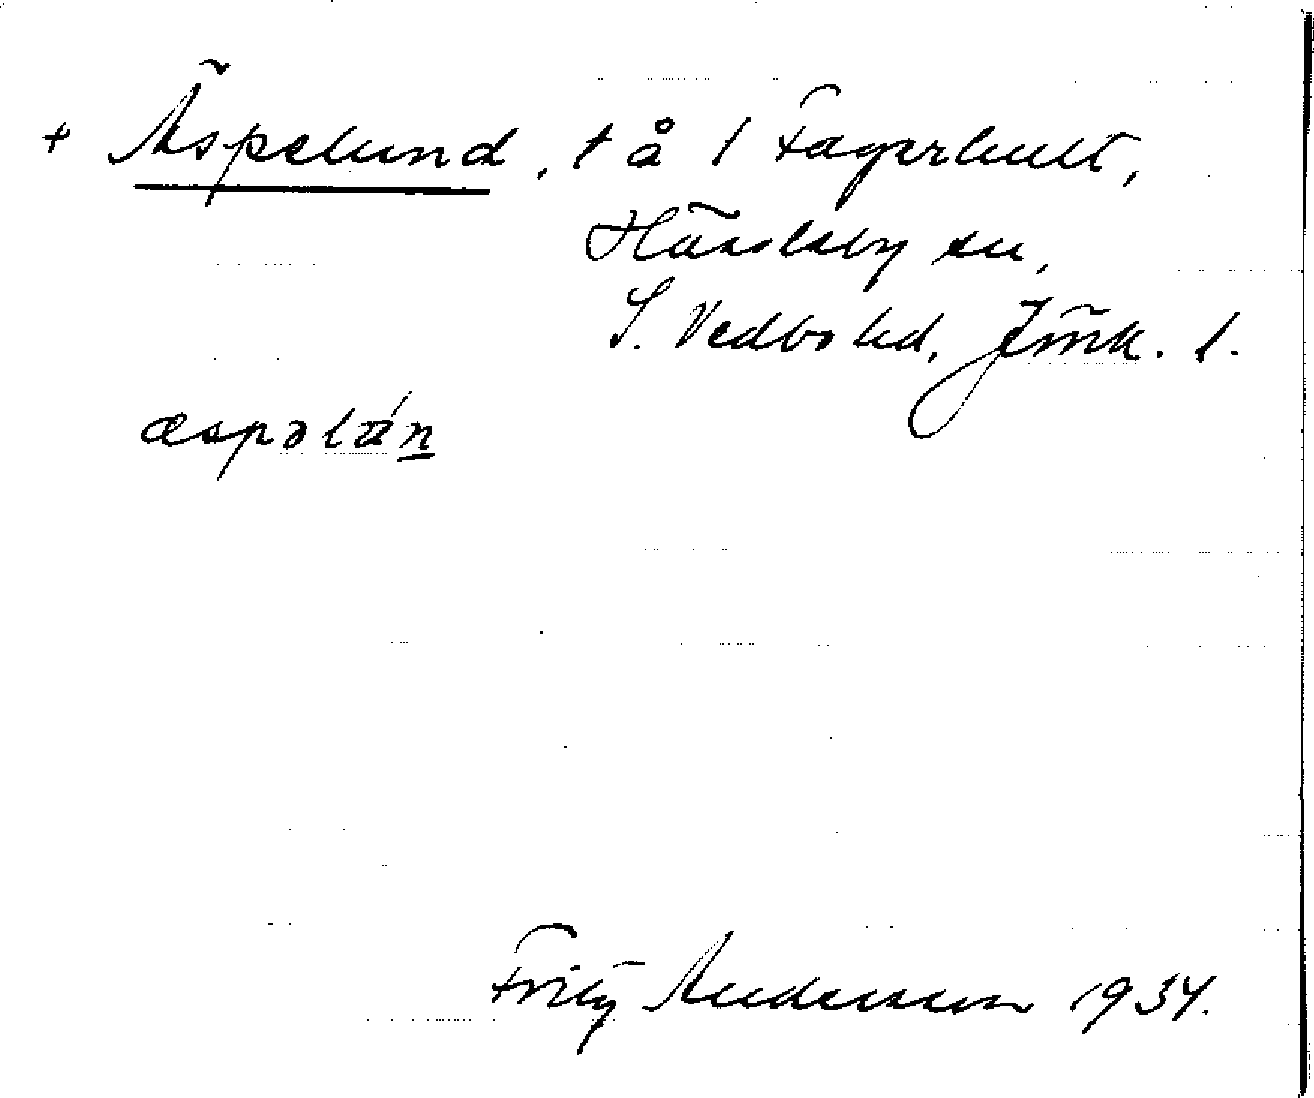 + Äspelund, t å / Fagerhult,
Hässleby sn,
S. Vedbo hd, Jönk. l.
æspəlán
Fritz Andersson 1934.